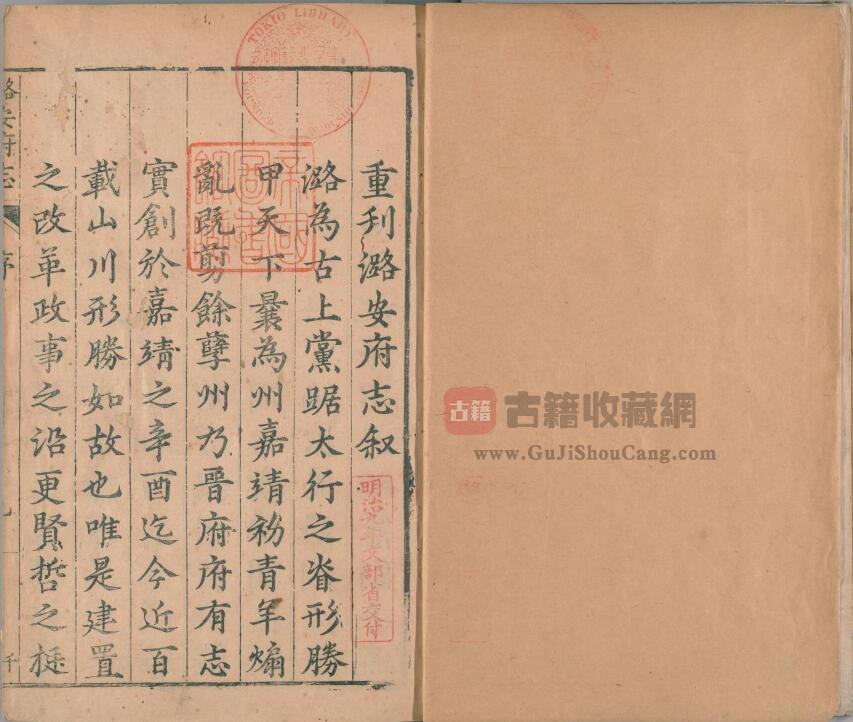 TOKIO LIBRARY
重利潞安府志叙
明治九年文部省交付
潞為古上黨踞太行之脊形勝
甲天下曩為州嘉靖初青羊煽
亂既剪餘孽州乃晉府府有志
實創於嘉靖之辛酉迄今近百
載山川形勝如故也唯是建置
之改革政事之沿更賢哲之挺
潞安府志
序
古籍
古籍收藏網
www.GuJiShouCang.com